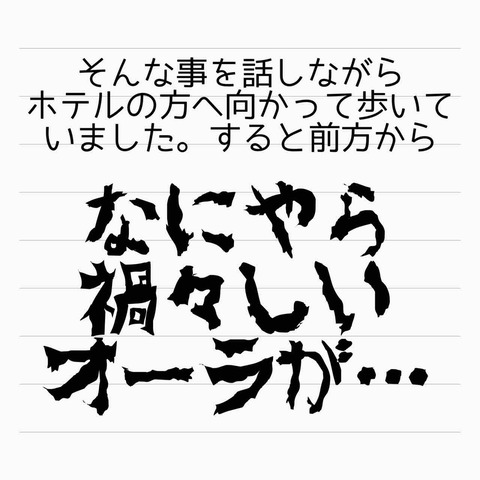 そんな事を話しながら
ホテルの方へ向かって歩いて
いました。すると前方から
なにやら
禍々しい
オーラが…